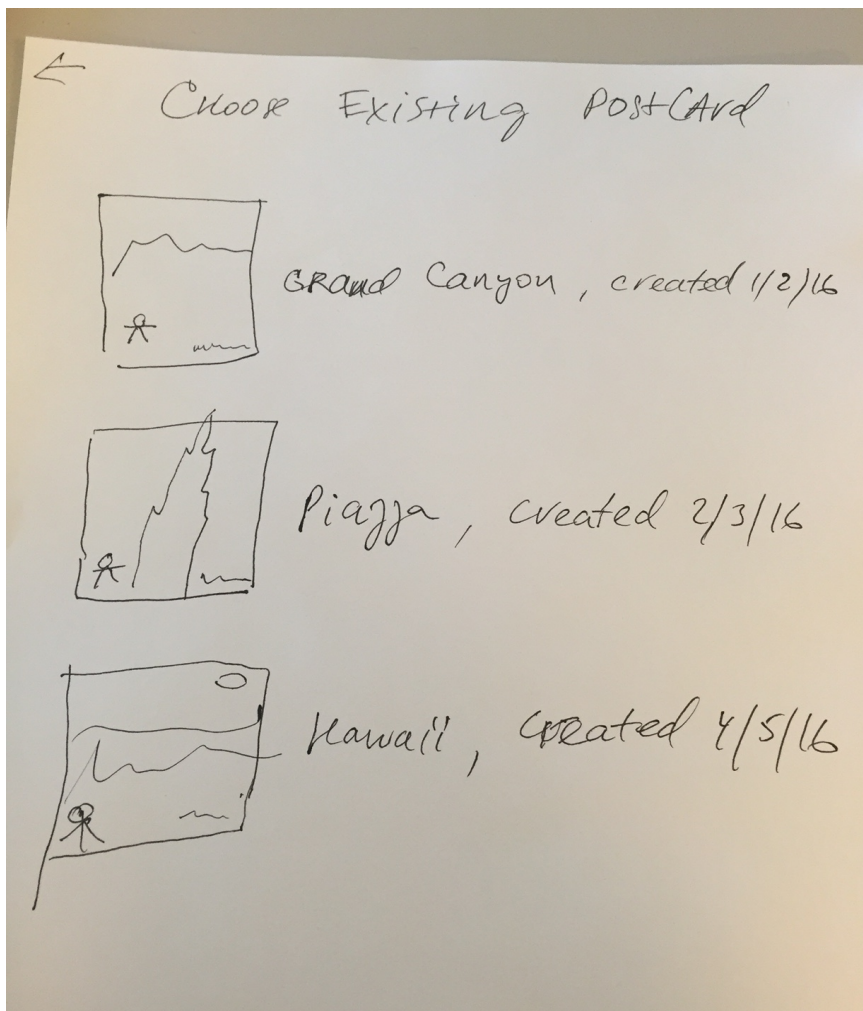 Choose Existing Postcard
Grand Canyon, created 1/2/16
Piazza, created 2/3/16
Hawaii, created 4/5/16